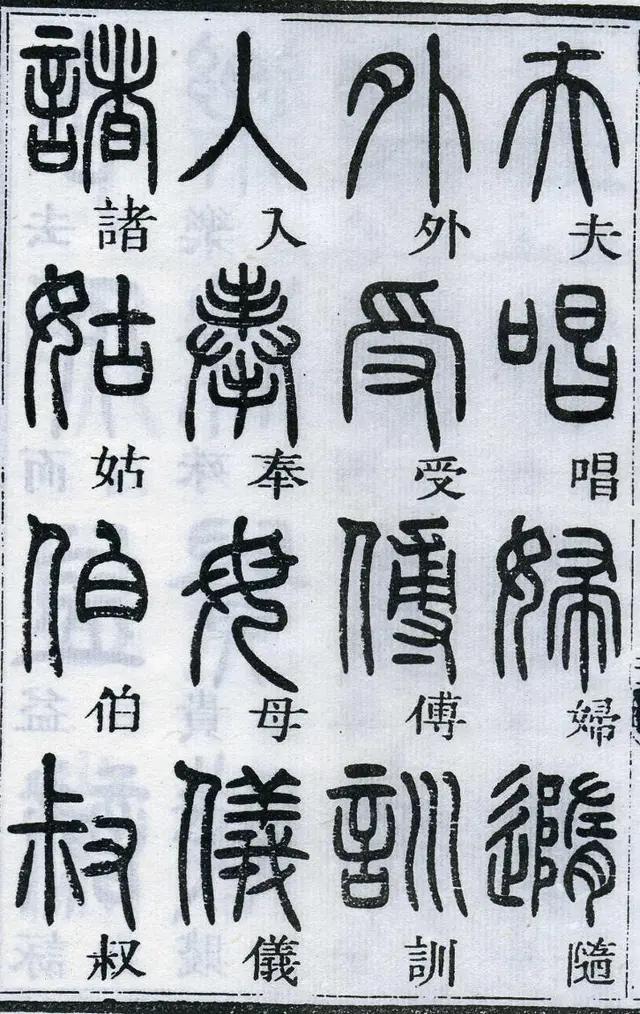 夫唱婦隨
外受傅訓
入奉母儀
諸姑伯叔